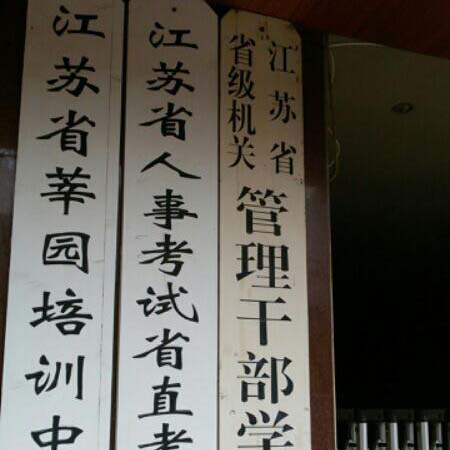 江苏省莘园培训中
江苏省人事考试省直考
江苏省
省级机关
管理干部学